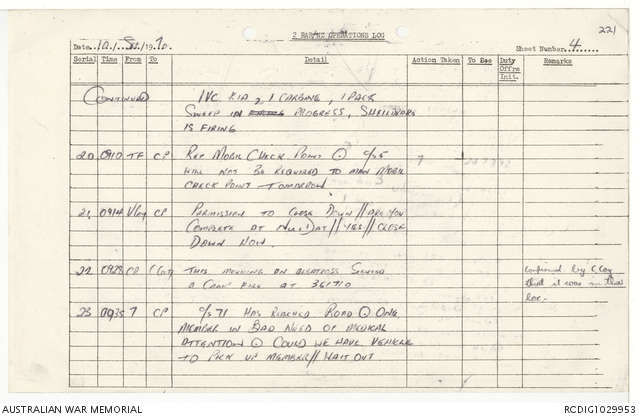 221
2 RAR/NZ OPERATIONS LOG
Date 10/ /1970. Sheet Number 4
Serial Time From To Detail Action Taken To See Duty Offrs Init. Remarks
(CONTINUED) 1 VC KIA, 1 CARBINE, 1 PACK
SWEEP IN PROGRESS, SHELLDRAKE
IS FIRING
20 0910 TF CP REF MOBIL CHECK POINT @ C/S5 7
WILL NOT BE REQUIRED TO MAN MOBIL
CHECK POINT TOMORROW
21 0914 CP PERMISSION TO CLOSE DOWN // ARE YOU
COMPLETE AT // YES // CLOSE
DOWN NOW.
22 0928 CP THIS MORNING AN ALBATROSS confirmed by C Coy
A FIRE AT 361710 that it was in that
loc.
23 0935 7 CP C/S 71 HAS REACHED ROAD @ ONE
MEMBER IN BAD NEED OF MEDICAL
ATTENTION @ COULD WE HAVE VEHICLE
TO PICK UP MEMBER // WAIT OUT
AUSTRALIAN WAR MEMORIAL RCDIG1029953